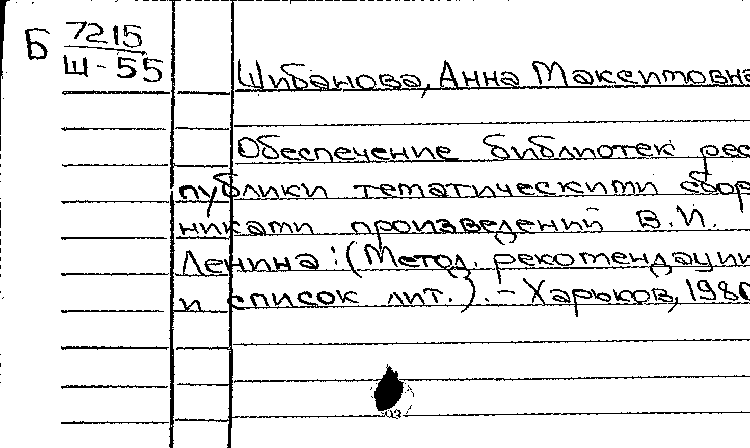 Б 7215
Ш-55
Шибанова, Анна Максимовна
Обеспечение библиотек рес
публики тематическими сбор
никами произведений В.И.
Ленина: (Метод. рекомендации
и список лит.). - Харьков, 1980